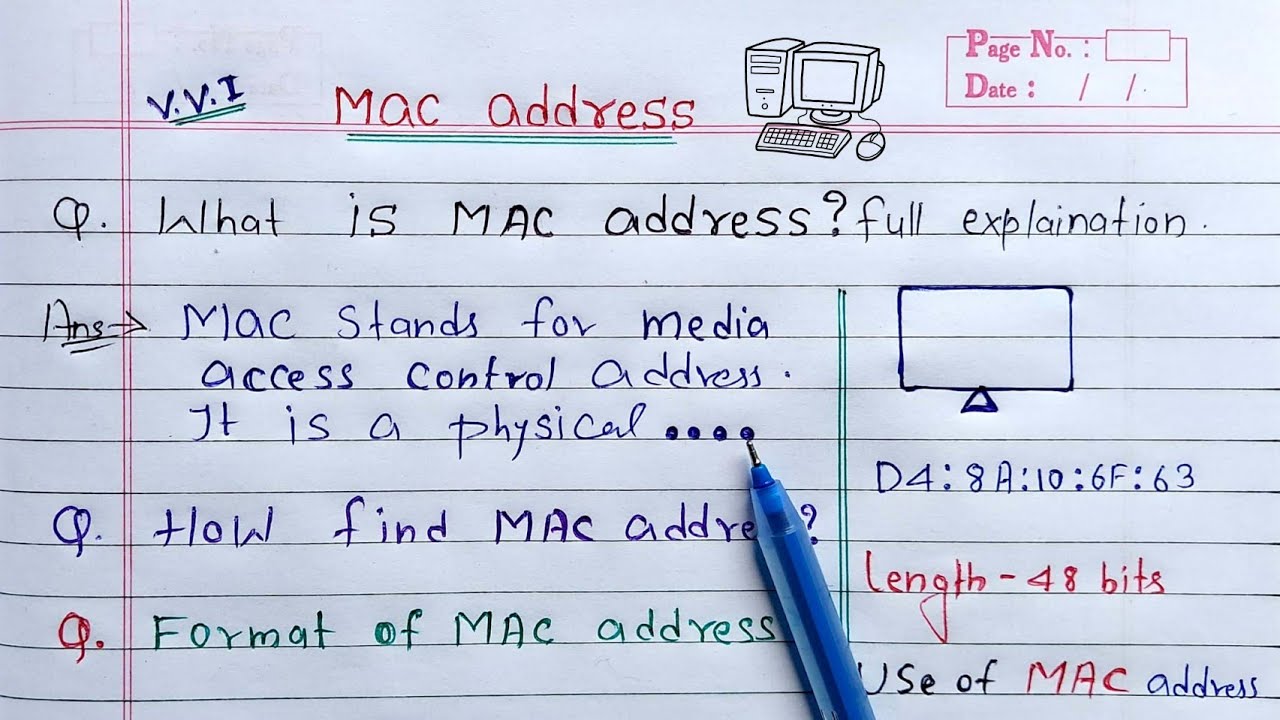 Page No. :
Date : / /
V.V.I
Mac address
Q. What is MAC address? full explaination.
Ans→ Mac Stands for media
access control address.
It is a physical ....
D4:8A:10:6F:63
Q. How find MAC address?
length - 48 bits
Q. Format of MAC address
Use of MAC address